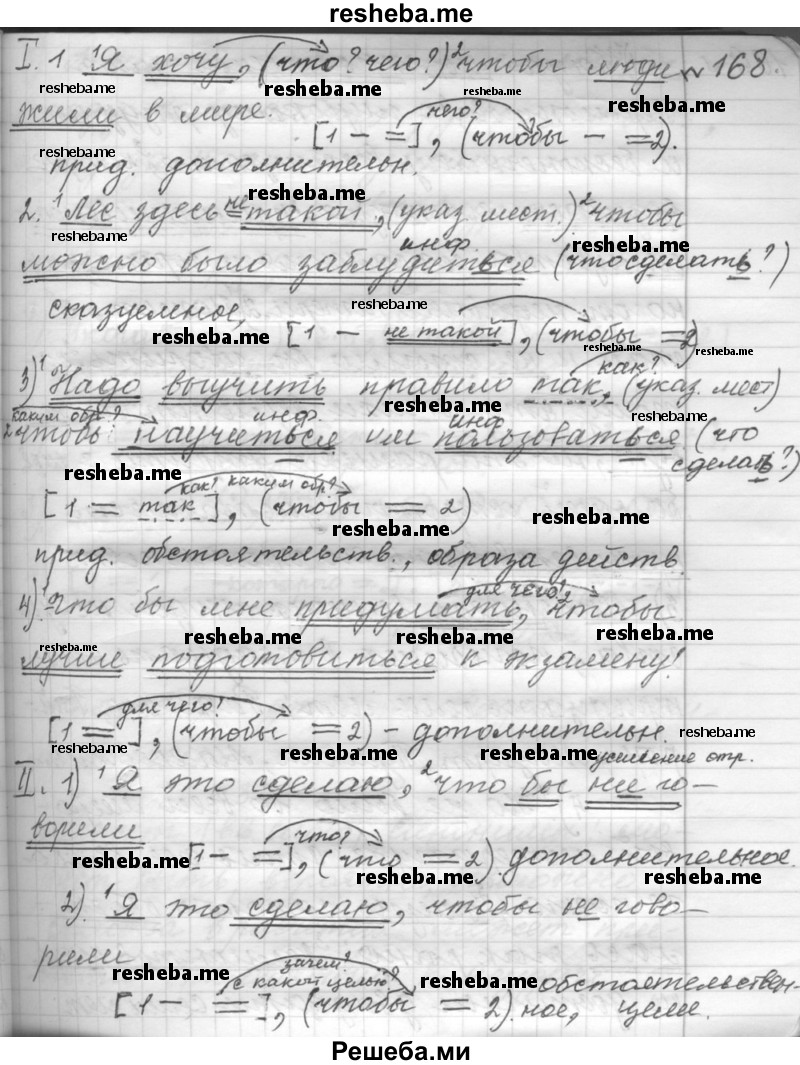 resheba.me
I. 1 ¹Я хочу, (что? чего?) ²чтобы люди №168.
жили в мире.
чего?
[1 – =], (чтобы – =2).
прид. дополнительн.
2. ¹Лес здесь не такой, (указ. мест.) ²чтобы
инф.
можно было заблудиться (что сделать?)
сказуемное, [1 – не такой], (чтобы =2)
как?
3) ¹Надо выучить правило так, (указ. мест)
каким обр? инф. инф.
²чтобы научиться им пользоваться (что
сделать?)
как? каким обр?
[1 = так], (чтобы = 2)
прид. обстоятельств., образа действ.
для чего?
4) ¹Что бы мне придумать, чтобы
лучше подготовиться к экзамену!
для чего?
[1 = ], (чтобы = 2) – дополнительн.
усиление отр.
II. 1) ¹Я это сделаю, ²что бы ни го-
ворили
что?
[1 – =], (что = 2). дополнительное.
2) ¹Я это сделаю, чтобы не гово-
рили
зачем?
с какой целью?
обстоятельствен-
[1 – =], (чтобы = 2). ное, цели.
resheba.me
Решеба.ми